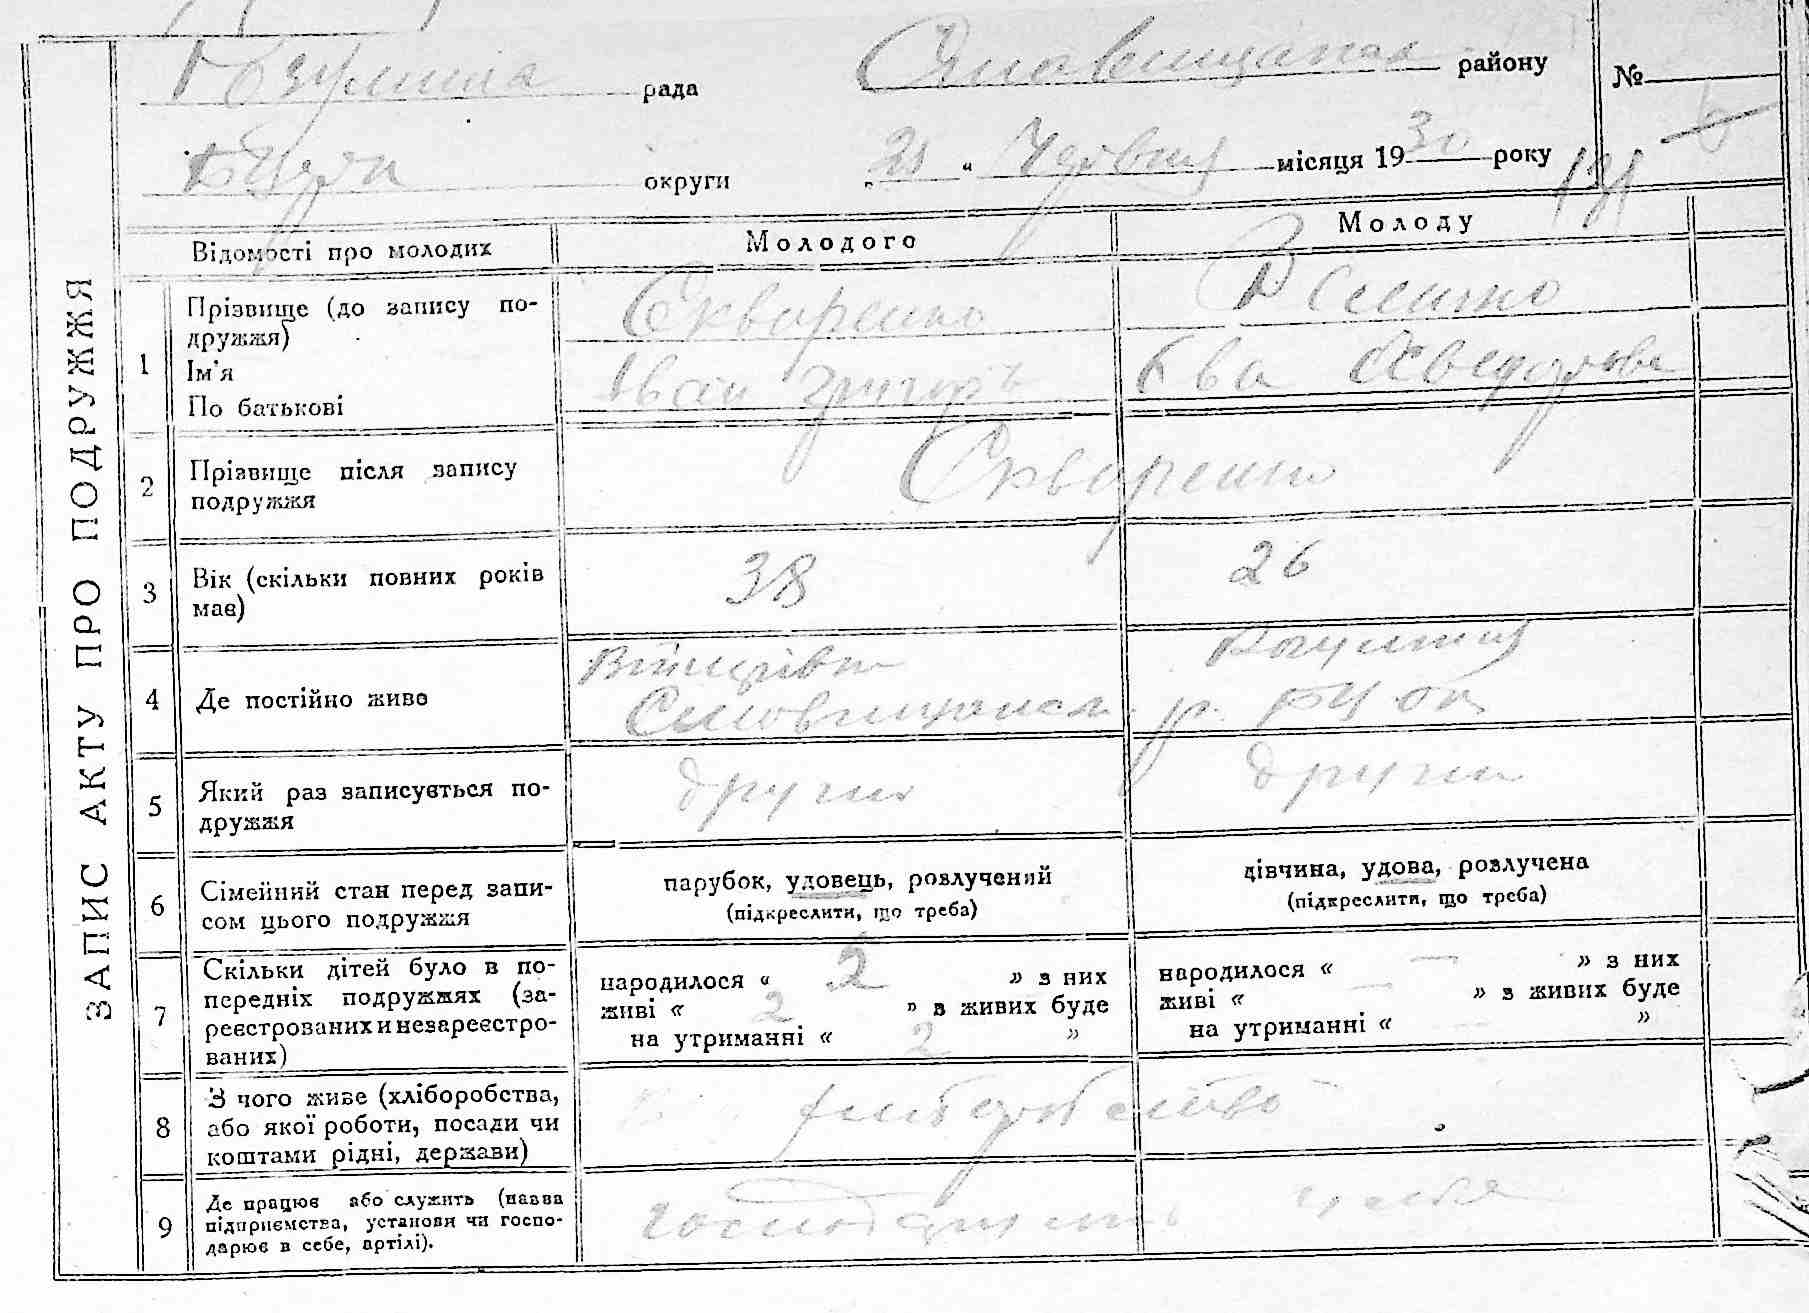 рада району №
округи „ 21 “ Червня місяця 1930 року
ЗАПИС АКТУ ПРО ПОДРУЖЖЯ
Відомості про молодих Молодого Молоду
1 Прізвище (до запису по-
дружжя)
Ім'я
По батькові
Скворенко
Іван Григор.
Ева
2 Прізвище після запису
подружжя
Скворенко
3 Вік (скільки повних років
має)
38 26
4 Де постійно живе
р. БЦ ок
5 Який раз записується по-
дружжя
другий другий
6 Сімейний стан перед запи-
сом цього подружжя
парубок, удовець, розлучений
(підкреслити, що треба)
дівчина, удова, розлучена
(підкреслити, що треба)
7 Скільки дітей було в по-
передніх подружжях (за-
реєстрованих и незареєстро-
ваних)
народилося « 2 » з них
живі « 2 » з живих буде
на утриманні « 2 »
народилося « — » з них
живі « — » з живих буде
на утриманні « — »
8 З чого живе (хліборобства,
або якої роботи, посади чи
коштами рідні, держави)
9 Де працює або служить (назва
підприємства, установи чи госпо-
дарює в себе, артілі).